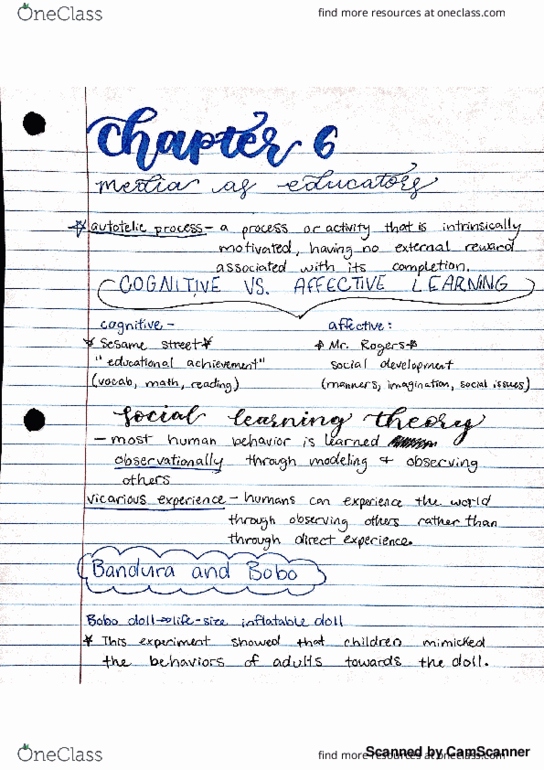 OneClass
find more resources at oneclass.com
chapter 6
media as educators
autotelic process - a process or activity that is intrinsically
motivated, having no external reward
associated with its completion.
COGNITIVE VS. AFFECTIVE LEARNING
cognitive - affective:
Sesame street Mr. Rogers
"educational achievement" social development
(vocab, math, reading) (manners, imagination, social issues)
social learning theory
- most human behavior is learned
observationally through modeling + observing
others
vicarious experience - humans can experience the world
through observing others rather than
through direct experience.
Bandura and Bobo
Bobo doll → life-size inflatable doll
This experiment showed that children mimicked
the behaviors of adults towards the doll.
OneClass
find more resources at oneclass.com
Scanned by CamScanner